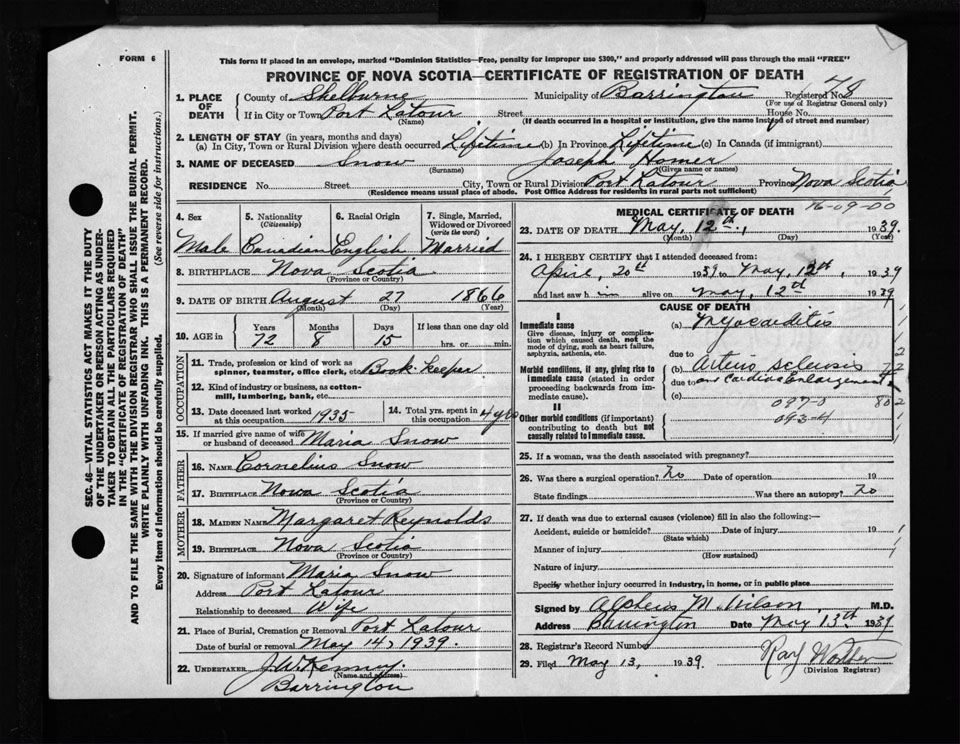 FORM 6
This form if placed in an envelope, marked "Dominion Statistics—Free, penalty for improper use $300," and properly addressed will pass through the mail "FREE"
PROVINCE OF NOVA SCOTIA—CERTIFICATE OF REGISTRATION OF DEATH
SEC. 46—VITAL STATISTICS ACT MAKES IT THE DUTY
OF THE UNDERTAKER OR PERSON ACTING AS UNDER-
TAKER TO OBTAIN ALL THE PARTICULARS REQUIRED
IN THE "CERTIFICATE OF REGISTRATION OF DEATH"
AND TO FILE THE SAME WITH THE DIVISION REGISTRAR WHO SHALL ISSUE THE BURIAL PERMIT.
WRITE PLAINLY WITH UNFADING INK. THIS IS A PERMANENT RECORD.
Every item of information should be carefully supplied. (See reverse side for instructions.)
1. PLACE OF DEATH
County of Shelburne Municipality of Barrington Registered No. 78
(For use of Registrar General only)
If in City or Town Port Latour Street House No.
(Name) (If death occurred in a hospital or institution, give the name instead of street and number)
2. LENGTH OF STAY (in years, months and days)
(a) In City, Town or Rural Division where death occurred Lifetime (b) In Province Lifetime (c) In Canada (if immigrant)
3. NAME OF DECEASED Snow Joseph Homer
(Surname) (Given name or names)
RESIDENCE No. Street City, Town or Rural Division Port Latour Province Nova Scotia
(Residence means usual place of abode. Post Office Address for residents in rural parts not sufficient)
4. Sex Male
5. Nationality (Citizenship) Canadian
6. Racial Origin English
7. Single, Married, Widowed or Divorced (write the word) Married
8. BIRTHPLACE Nova Scotia
(Province or Country)
9. DATE OF BIRTH August 27 1866
(Month) (Day) (Year)
10. AGE in Years 72 Months 8 Days 15 If less than one day old
hrs. or min.
OCCUPATION
11. Trade, profession or kind of work as spinner, teamster, office clerk, etc. Book-keeper
12. Kind of industry or business, as cotton-mill, lumbering, bank, etc.
13. Date deceased last worked at this occupation 1935
14. Total yrs. spent in this occupation 4 yrs
15. If married give name of wife or husband of deceased Maria Snow
FATHER
16. NAME Cornelius Snow
17. BIRTHPLACE Nova Scotia
(Province or Country)
MOTHER
18. MAIDEN NAME Margaret Reynolds
19. BIRTHPLACE Nova Scotia
(Province or Country)
20. Signature of informant Maria Snow
Address Port Latour
Relationship to deceased Wife
21. Place of Burial, Cremation or Removal Port Latour
Date of burial or removal May 14, 1939.
22. UNDERTAKER J.W. Kenney
(Name and address)
Barrington
MEDICAL CERTIFICATE OF DEATH 76-09-00
23. DATE OF DEATH May, 12th, 1939
(Month) (Day) (Year)
24. I HEREBY CERTIFY that I attended deceased from:
April, 20th 1937 to May, 12th, 1939
and last saw him alive on May, 12th 1939
CAUSE OF DEATH
I
Immediate cause
Give disease, injury or complication which caused death, not the mode of dying, such as heart failure, asphyxia, asthenia, etc.
(a) Myocarditis
due to
Morbid conditions, if any, giving rise to immediate cause (stated in order proceeding backwards from immediate cause).
(b) Arterio sclerosis
due to and Cardiac Enlargement
(c) 097-0 802
II
093-4
Other morbid conditions (if important) contributing to death but not causally related to immediate cause.
25. If a woman, was the death associated with pregnancy?
26. Was there a surgical operation? No Date of operation 19
State findings Was there an autopsy? No
27. If death was due to external causes (violence) fill in also the following:—
Accident, suicide or homicide? Date of injury 19
(State which)
Manner of injury
(How sustained)
Nature of injury
Specify whether injury occurred in industry, in home, or in public place
Signed by Alpheus M. Wilson, M.D.
Address Barrington Date May 13th 1939
28. Registrar's Record Number
29. Filed May 13, 1939
(Division Registrar)